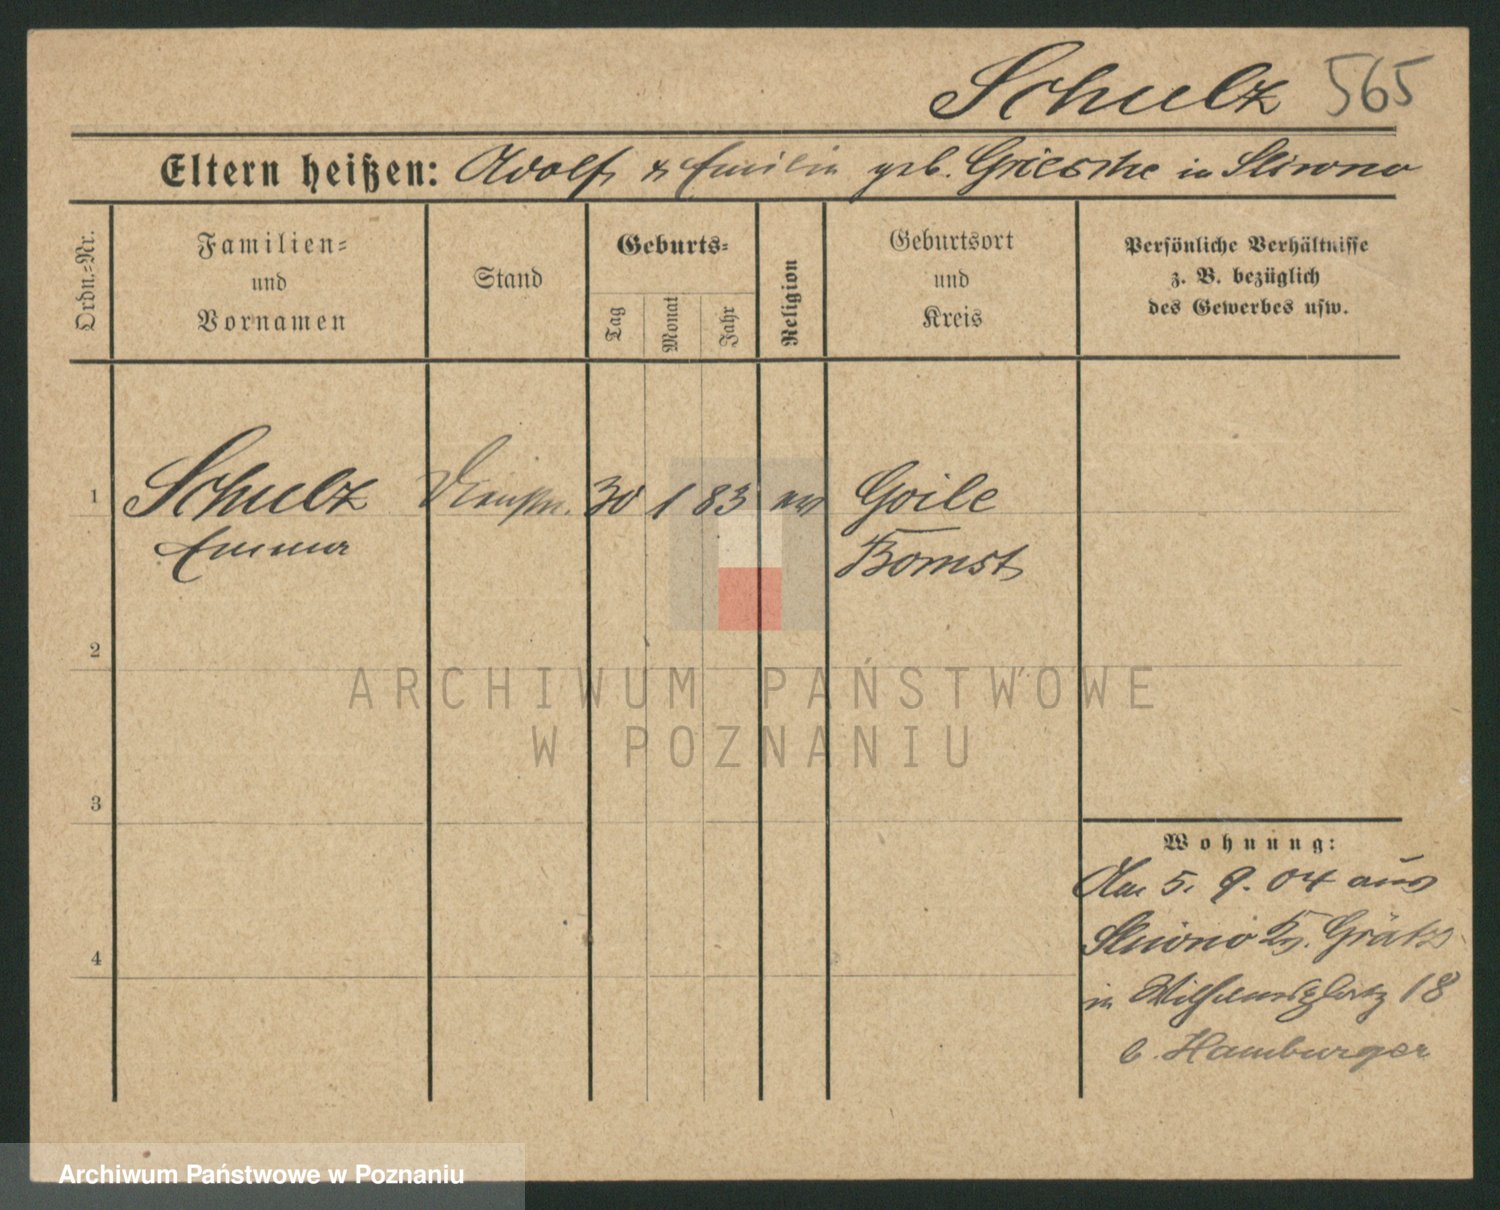 Schulz 565
Eltern heißen: Adolf & Emilie geb. Griesche in Sliwno
Ordn.=Nr.
Familien=
und
Vornamen
Stand
Geburts=
Tag
Monat
Jahr
Religion
Geburtsort
und
Kreis
Persönliche Verhältnisse
z. B. bezüglich
des Gewerbes usw.
1 Schulz 30 1 83 ev Goile
Emma Bomst
2
ARCHIWUM PAŃSTWOWE
W POZNANIU
3
Wohnung:
Am 5. 9. 04 aus
Sliwno Kr. Grätz
in Wilhelmsplatz 18
b. Hamburger
4
Archiwum Państwowe w Poznaniu